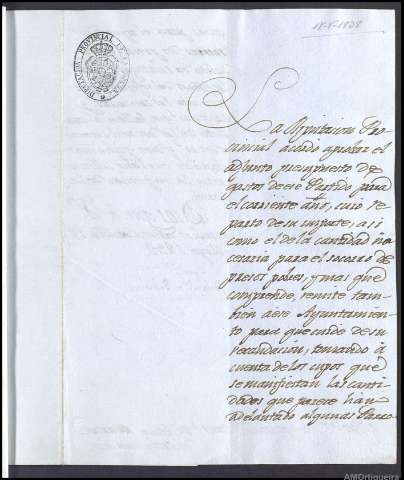 18-8-1838
DIPUTACION PROVINCIAL DE LA CORUÑA
La Diputacion Pro-
vincial acordó aprobar el
adjunto presupuesto de
gastos de ese Partido para
el corriente año, cuio re-
parto de su importe, asi
como el de la cantidad ne-
cesaria para el socorro de
presos pobres, y mas que
comprende, remite tam-
bien a ese Ayuntamien-
to para que cuide de su
recaudacion, tomando á
cuenta de los cupos que
se manifiestan las canti-
dades que parece han
adelantado algunas Parro-
AMOrtigueira